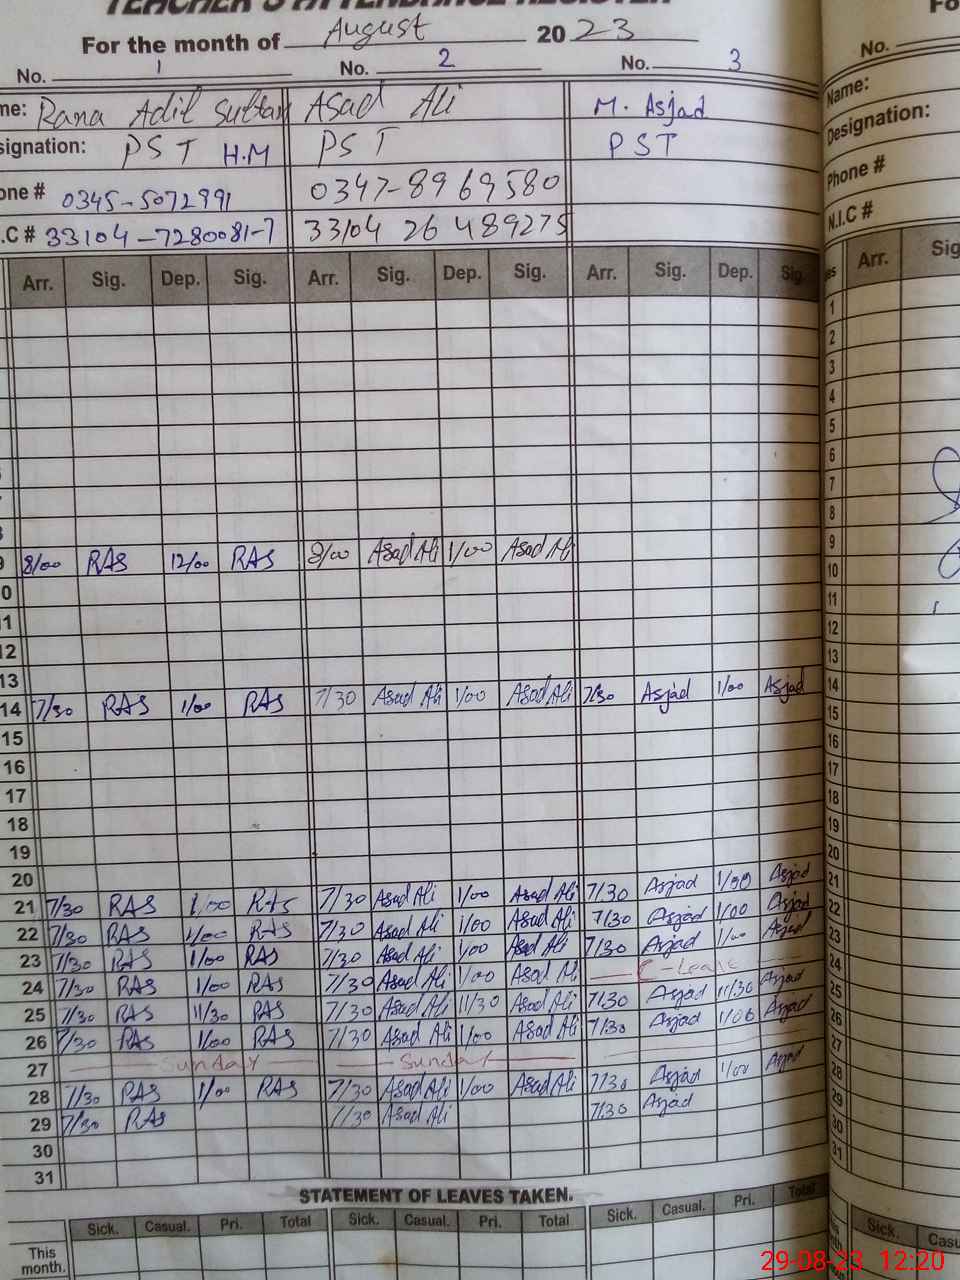 TEACHER'S ATTENDANCE REGISTER
For the month of August 2023
No. 1 No. 2 No. 3 No.
me: Rana Adil Sultan Asad Ali M. Asjad Name:
signation: PST H.M PST PST Designation:
one # 0345-5072991 0347-8969580 Phone #
.C # 33104-7280081-7 33104 26 489275 N.I.C #
Arr. Sig. Dep. Sig. Arr. Sig. Dep. Sig. Arr. Sig. Dep. Sig. es Arr. Sig
1
2
3
4
5
6
7
8
9 8/00 RAS 12/00 RAS 8/00 Asad Ali 1/00 Asad Ali 9
10 10
11 11
12 12
13 13
14 7/30 RAS 1/00 RAS 7/30 Asad Ali 1/00 Asad Ali 7/30 Asjad 1/00 Asjad 14
15 15
16 16
17 17
18 18
19 19
20 20
21 7/30 RAS 1/00 RAS 7/30 Asad Ali 1/00 Asad Ali 7/30 Asjad 1/00 Asjad 21
22 7/30 RAS 1/00 RAS 7/30 Asad Ali 1/00 Asad Ali 7/30 Asjad 1/00 Asjad 22
23 7/30 RAS 1/00 RAS 7/30 Asad Ali 1/00 Asad Ali 7/30 Asjad 1/00 Asjad 23
24 7/30 RAS 1/00 RAS 7/30 Asad Ali 1/00 Asad Ali C - Leave 24
25 7/30 RAS 11/30 RAS 7/30 Asad Ali 11/30 Asad Ali 7/30 Asjad 11/30 Asjad 25
26 7/30 RAS 1/00 RAS 7/30 Asad Ali 1/00 Asad Ali 7/30 Asjad 1/00 Asjad 26
27 Sunday Sunday 27
28 7/30 RAS 1/00 RAS 7/30 Asad Ali 1/00 Asad Ali 7/30 Asjad 1/00 Asjad 28
29 7/30 RAS 7/30 Asad Ali 7/30 Asjad 29
30 30
31 31
STATEMENT OF LEAVES TAKEN.
Sick. Casual. Pri. Total Sick. Casual. Pri. Total Sick. Casual. Pri. Total Sick. Casu
This month.
29-08-23 12:20